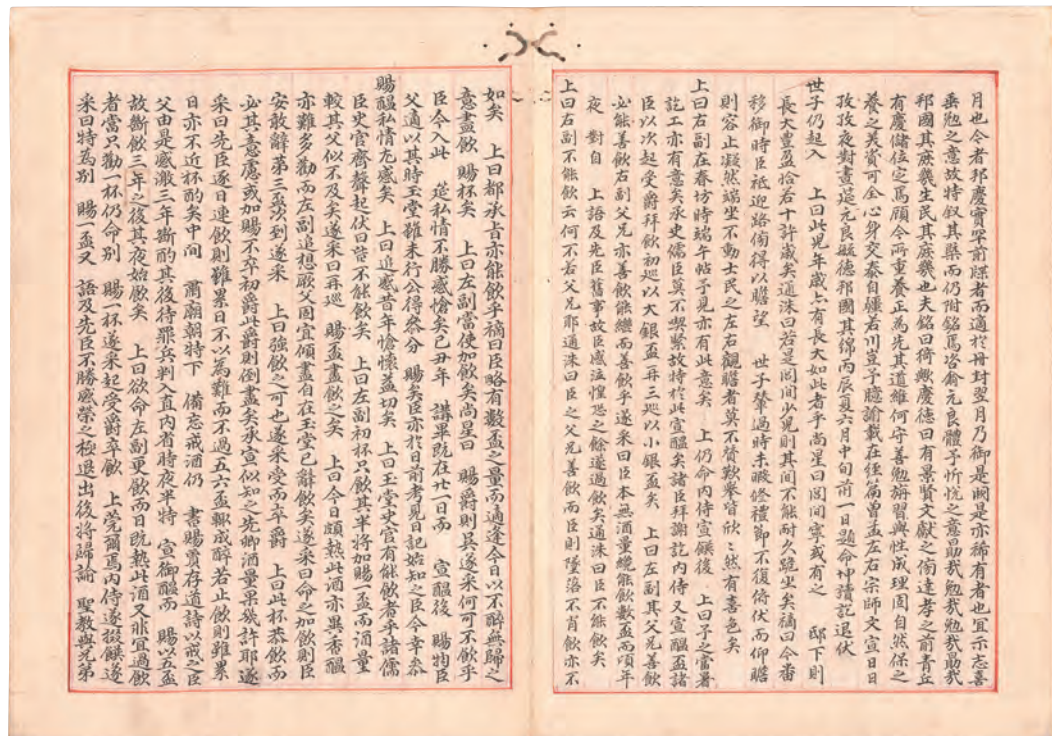 月也今者邦慶實罕前牒者而適於冊封翌月乃御是閣是亦稀有者也宜示志喜
垂勉之意故特叙其槩而仍附銘焉咨爾元良體予忻忱之意勗哉勉哉勉哉勗哉
邦國其庶幾生民其庶幾也夫銘曰猗歟慶德日有景賢文獻之備達孝之前青丘
有慶儲位定焉顧今所重養正為先其道維何守善勉旃習與性成理固自然保之
養之美資可全心身交泰自躋右川豈予臆諭載在經篇曾孟左右宗師文宣日日
孜孜夜對晝筵元良毓德邦國其綿丙辰夏六月中旬前一日題命坤讀訖退伏
世子仍起入 上曰此兒年歲亦有長大如此者乎尚星曰閭閻寧或有之 邸下則
長大豊盈恰若十許歲矣通洙曰若是閭閻少兒則其間不能耐久跪坐矣䄎曰今番
移御時臣祗迎路傍得以瞻望 世子輦過時未暇修禮節不復倚伏而仰瞻
則容止凝然端坐不動士民之左右觀瞻者莫不贊歎擧皆欣欣然有喜色矣
上曰右副在春坊時端午帖子見亦有此意矣 上仍命內侍宣饌後 上曰予之當暑
訖工亦有意矣承史儒臣莫不與繫故特於此宣醞矣諸臣拜謝訖內侍又宣醞盃諸
臣以次起受爵拜飲初巡以大銀盃再三巡以小銀盃矣 上曰左副其父兄善飲
必能善飲右副父兄亦善飲能繼而善飲乎遂采曰臣本無酒量纔能飲數盃而頃年
夜 對自 上語及先臣舊事故臣感泣惶恐之餘遂過飲矣通洙曰臣不能飲矣
上曰右副不能飲云何不若父兄耶通洙曰臣之父兄善飲而臣則墮落不肖飲亦不
如矣 上曰都承旨亦能飲乎䄎曰臣略有數盃之量而適逢今日以不醉無歸之
意盡飲 賜杯矣 上曰左副當使加飲矣尚星曰 賜爵則吳遂采何可不飲乎
臣今入此 筵私情不勝感愴矣己丑年 講畢既在廿一日而 宣醞後 賜物臣
父適以其時玉堂雖未行公得叅分 賜矣臣亦於日前考見日記始知之臣今幸叅
賜醞私情尤感矣 上曰追感昔年愴懷益切矣 上曰玉堂史官有能飲者乎諸儒
臣史官齊聲起伏曰皆不能飲矣 上曰左副初杯只飲其半將加賜一盃而酒量
較其父似不及矣遂采曰再巡 賜盃盡飲之矣 上曰今日頗熱此酒亦異香醞
亦難多勸而左副追想厥父固宜傾盡自在玉堂已辭飲矣遂采曰命之加飲則臣
安敢辭第三盃次到遂采 上曰強飲之可也遂采受而卒爵 上曰此杯恭飲而
必其意慮或加賜不卒初爵此爵則倒盡矣承宣似知之先卿酒量果幾許耶遂
采曰先臣逐日連飲則雖累日不以為難而不過五六盃輒成醉若止飲則雖累
日亦不近杯酌矣中間 肅廟朝特下 備忘戒酒仍 書賜賈存道詩以戒之臣
父由是感激三年斷酌其後待罪兵判入直內省時夜半特 宣御醞而 賜以五盃
故斷飲三年之後其夜始飲矣 上曰欲命左副更飲而日既熱此酒又非宜過飲
者當只勸一杯仍命別 賜一杯遂采起受爵卒飲 上莞爾焉內侍遂掇饌遂
采曰特為別 賜一盃又 語及先臣不勝感榮之極退出後將歸諭 聖教與兄弟